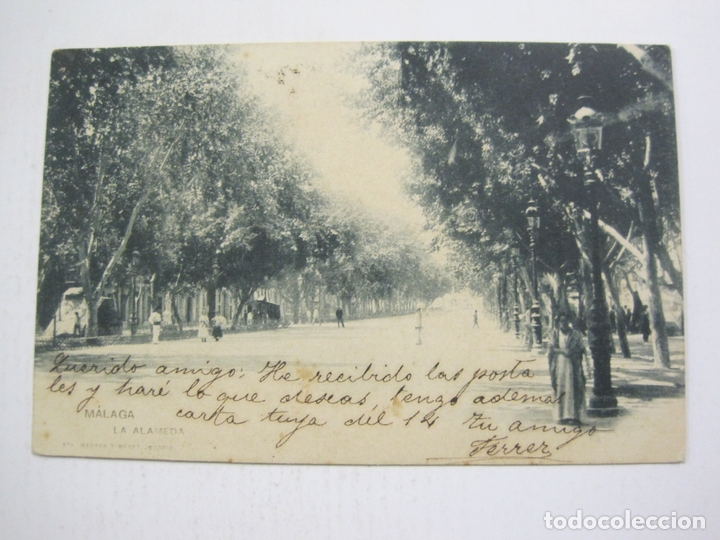 Querido amigo: He recibido las posta
les y haré lo que deseas, tengo ademas
carta tuya dél 14 tu amigo
Ferrer
MÁLAGA
LA ALAMEDA
todocoleccion.net